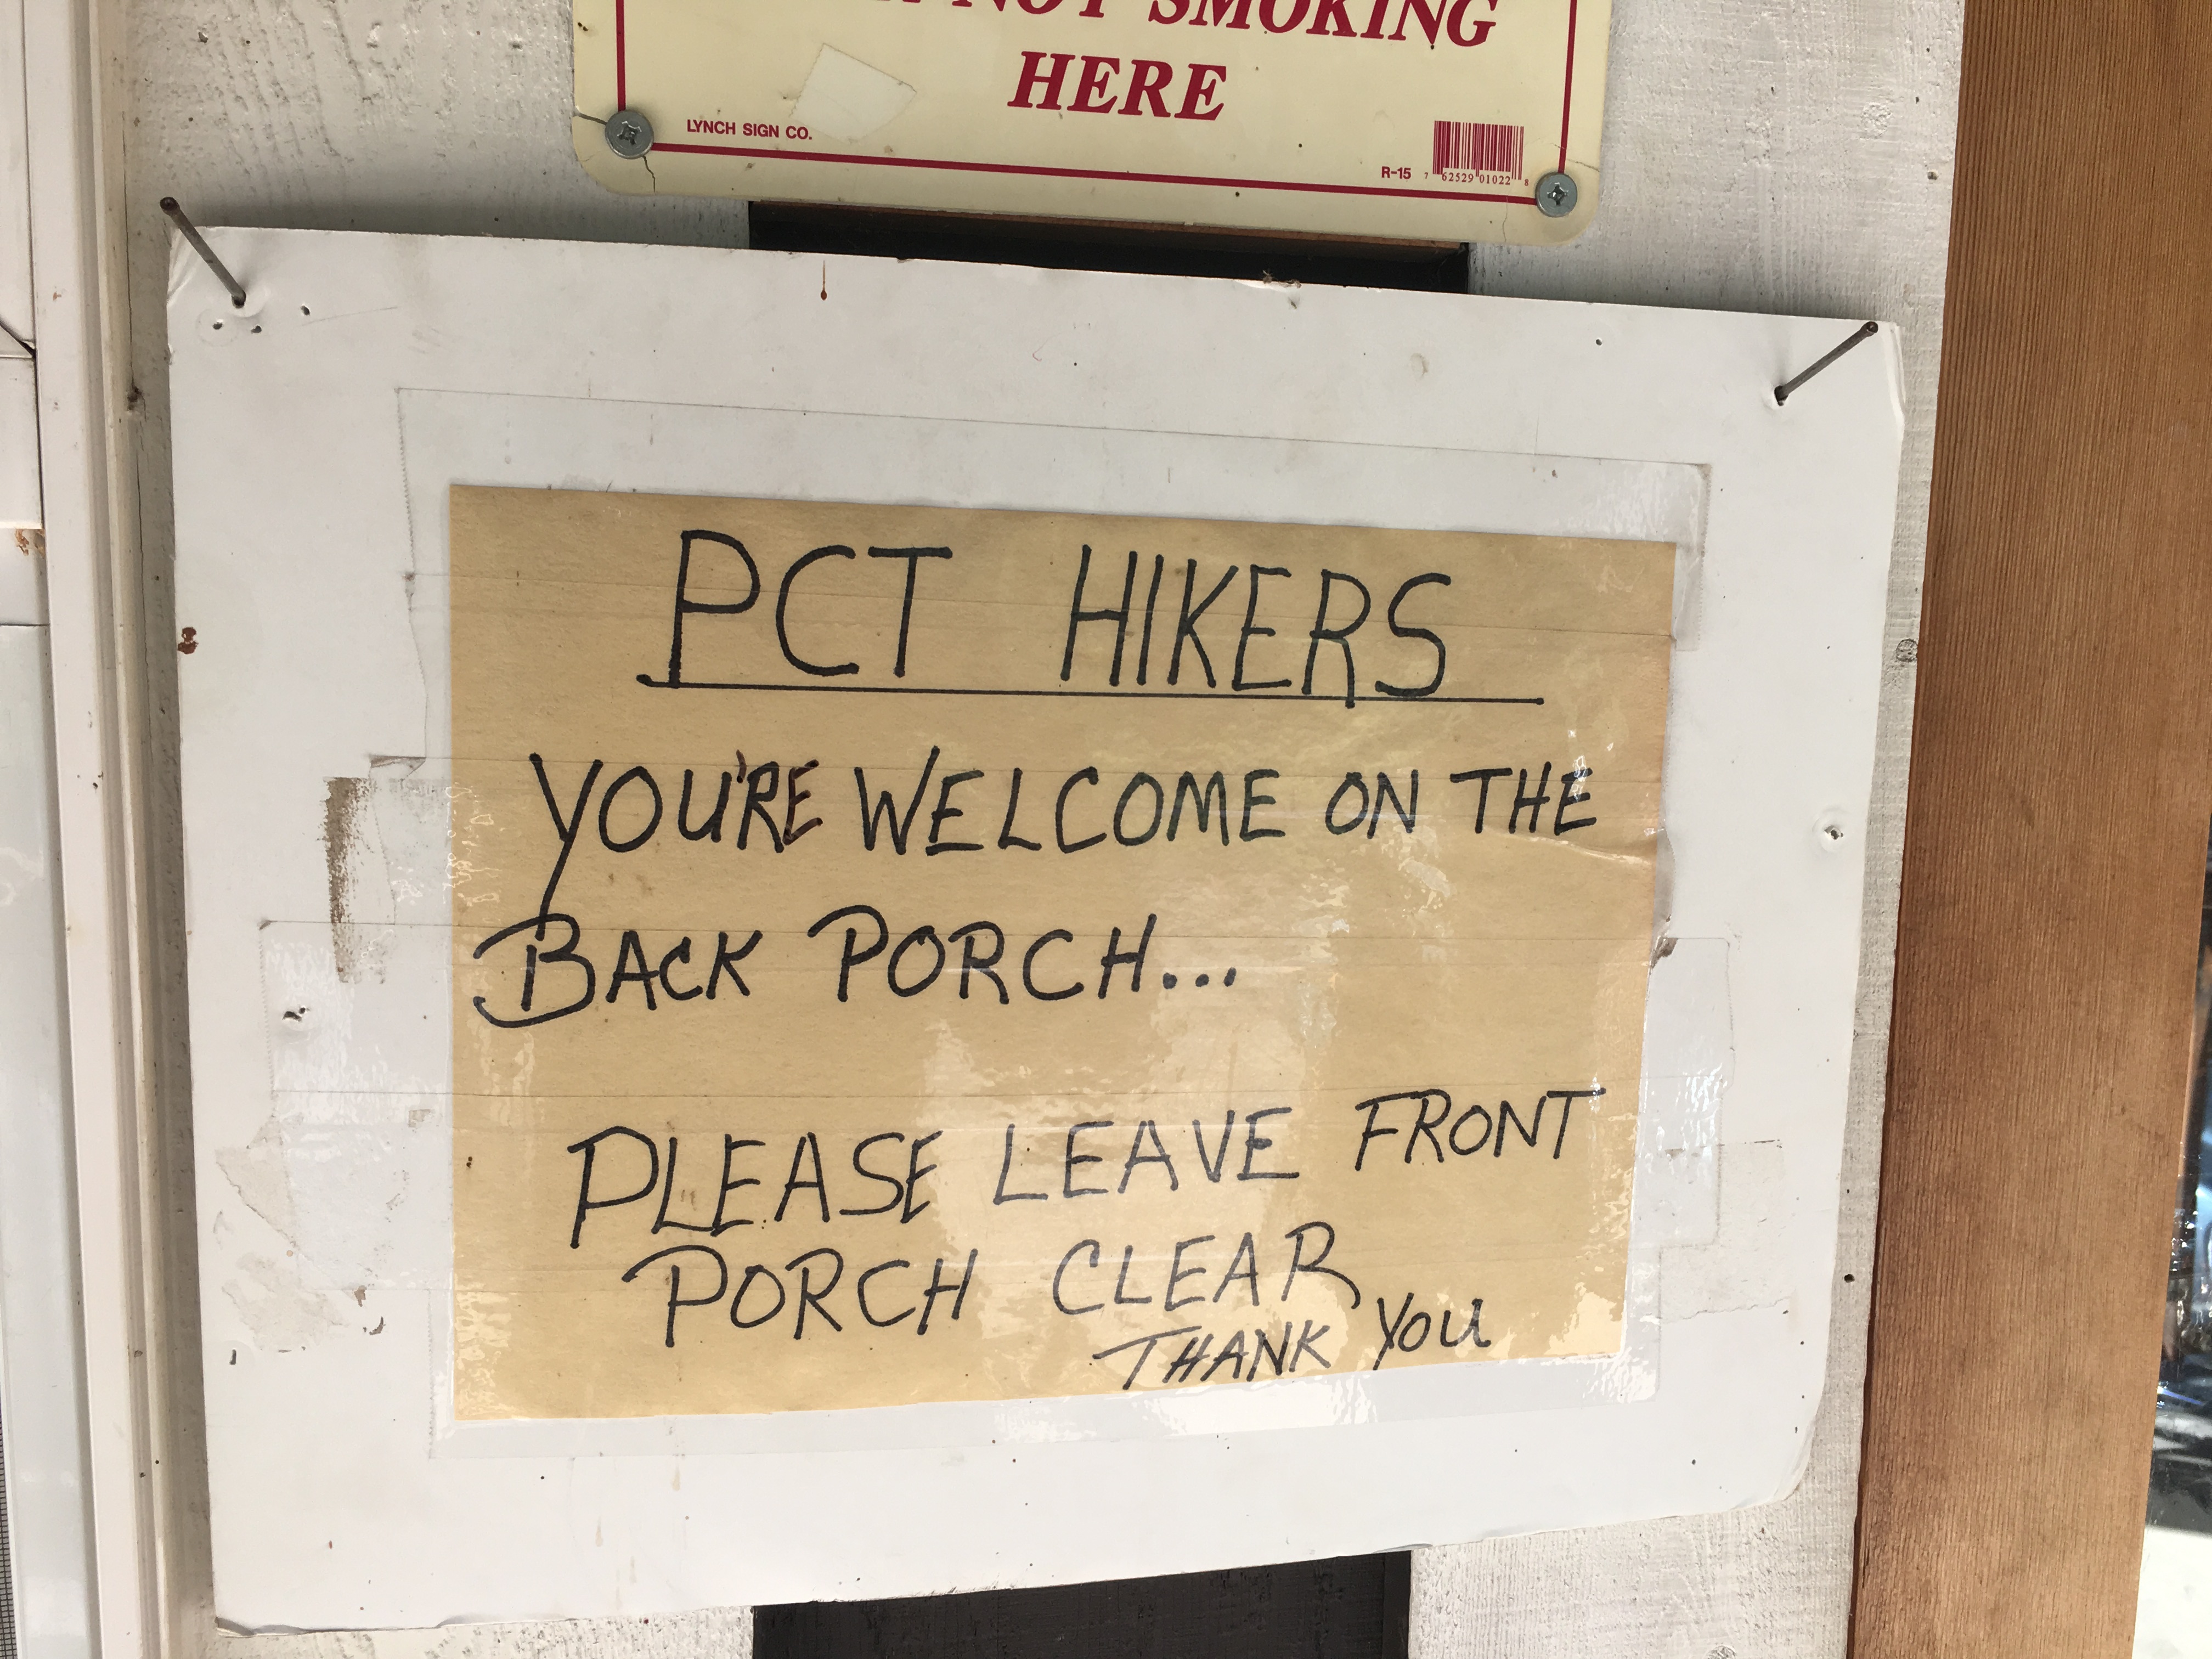 NOT SMOKING
HERE
LYNCH SIGN CO.
R-15
7 62529 01022 8
PCT HIKERS
YOU'RE WELCOME ON THE
BACK PORCH...
PLEASE LEAVE FRONT
PORCH CLEAR
THANK YOU